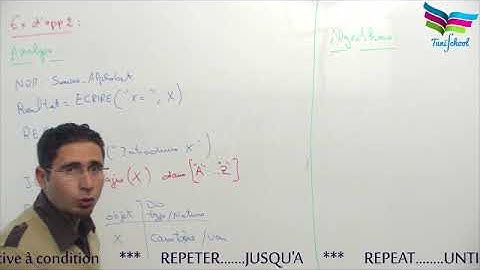 Ex d'app 2 :
Analyse
Algorithme
TuniSchool
Resultat = ECRIRE("x = ", X)
RE
("Introduire X")
(X) dans ["A".."Z"]
objet
Type/Nature
X
Caractère / var
tive à condition *** REPETER.......JUSQU'A *** REPEAT........UNTI